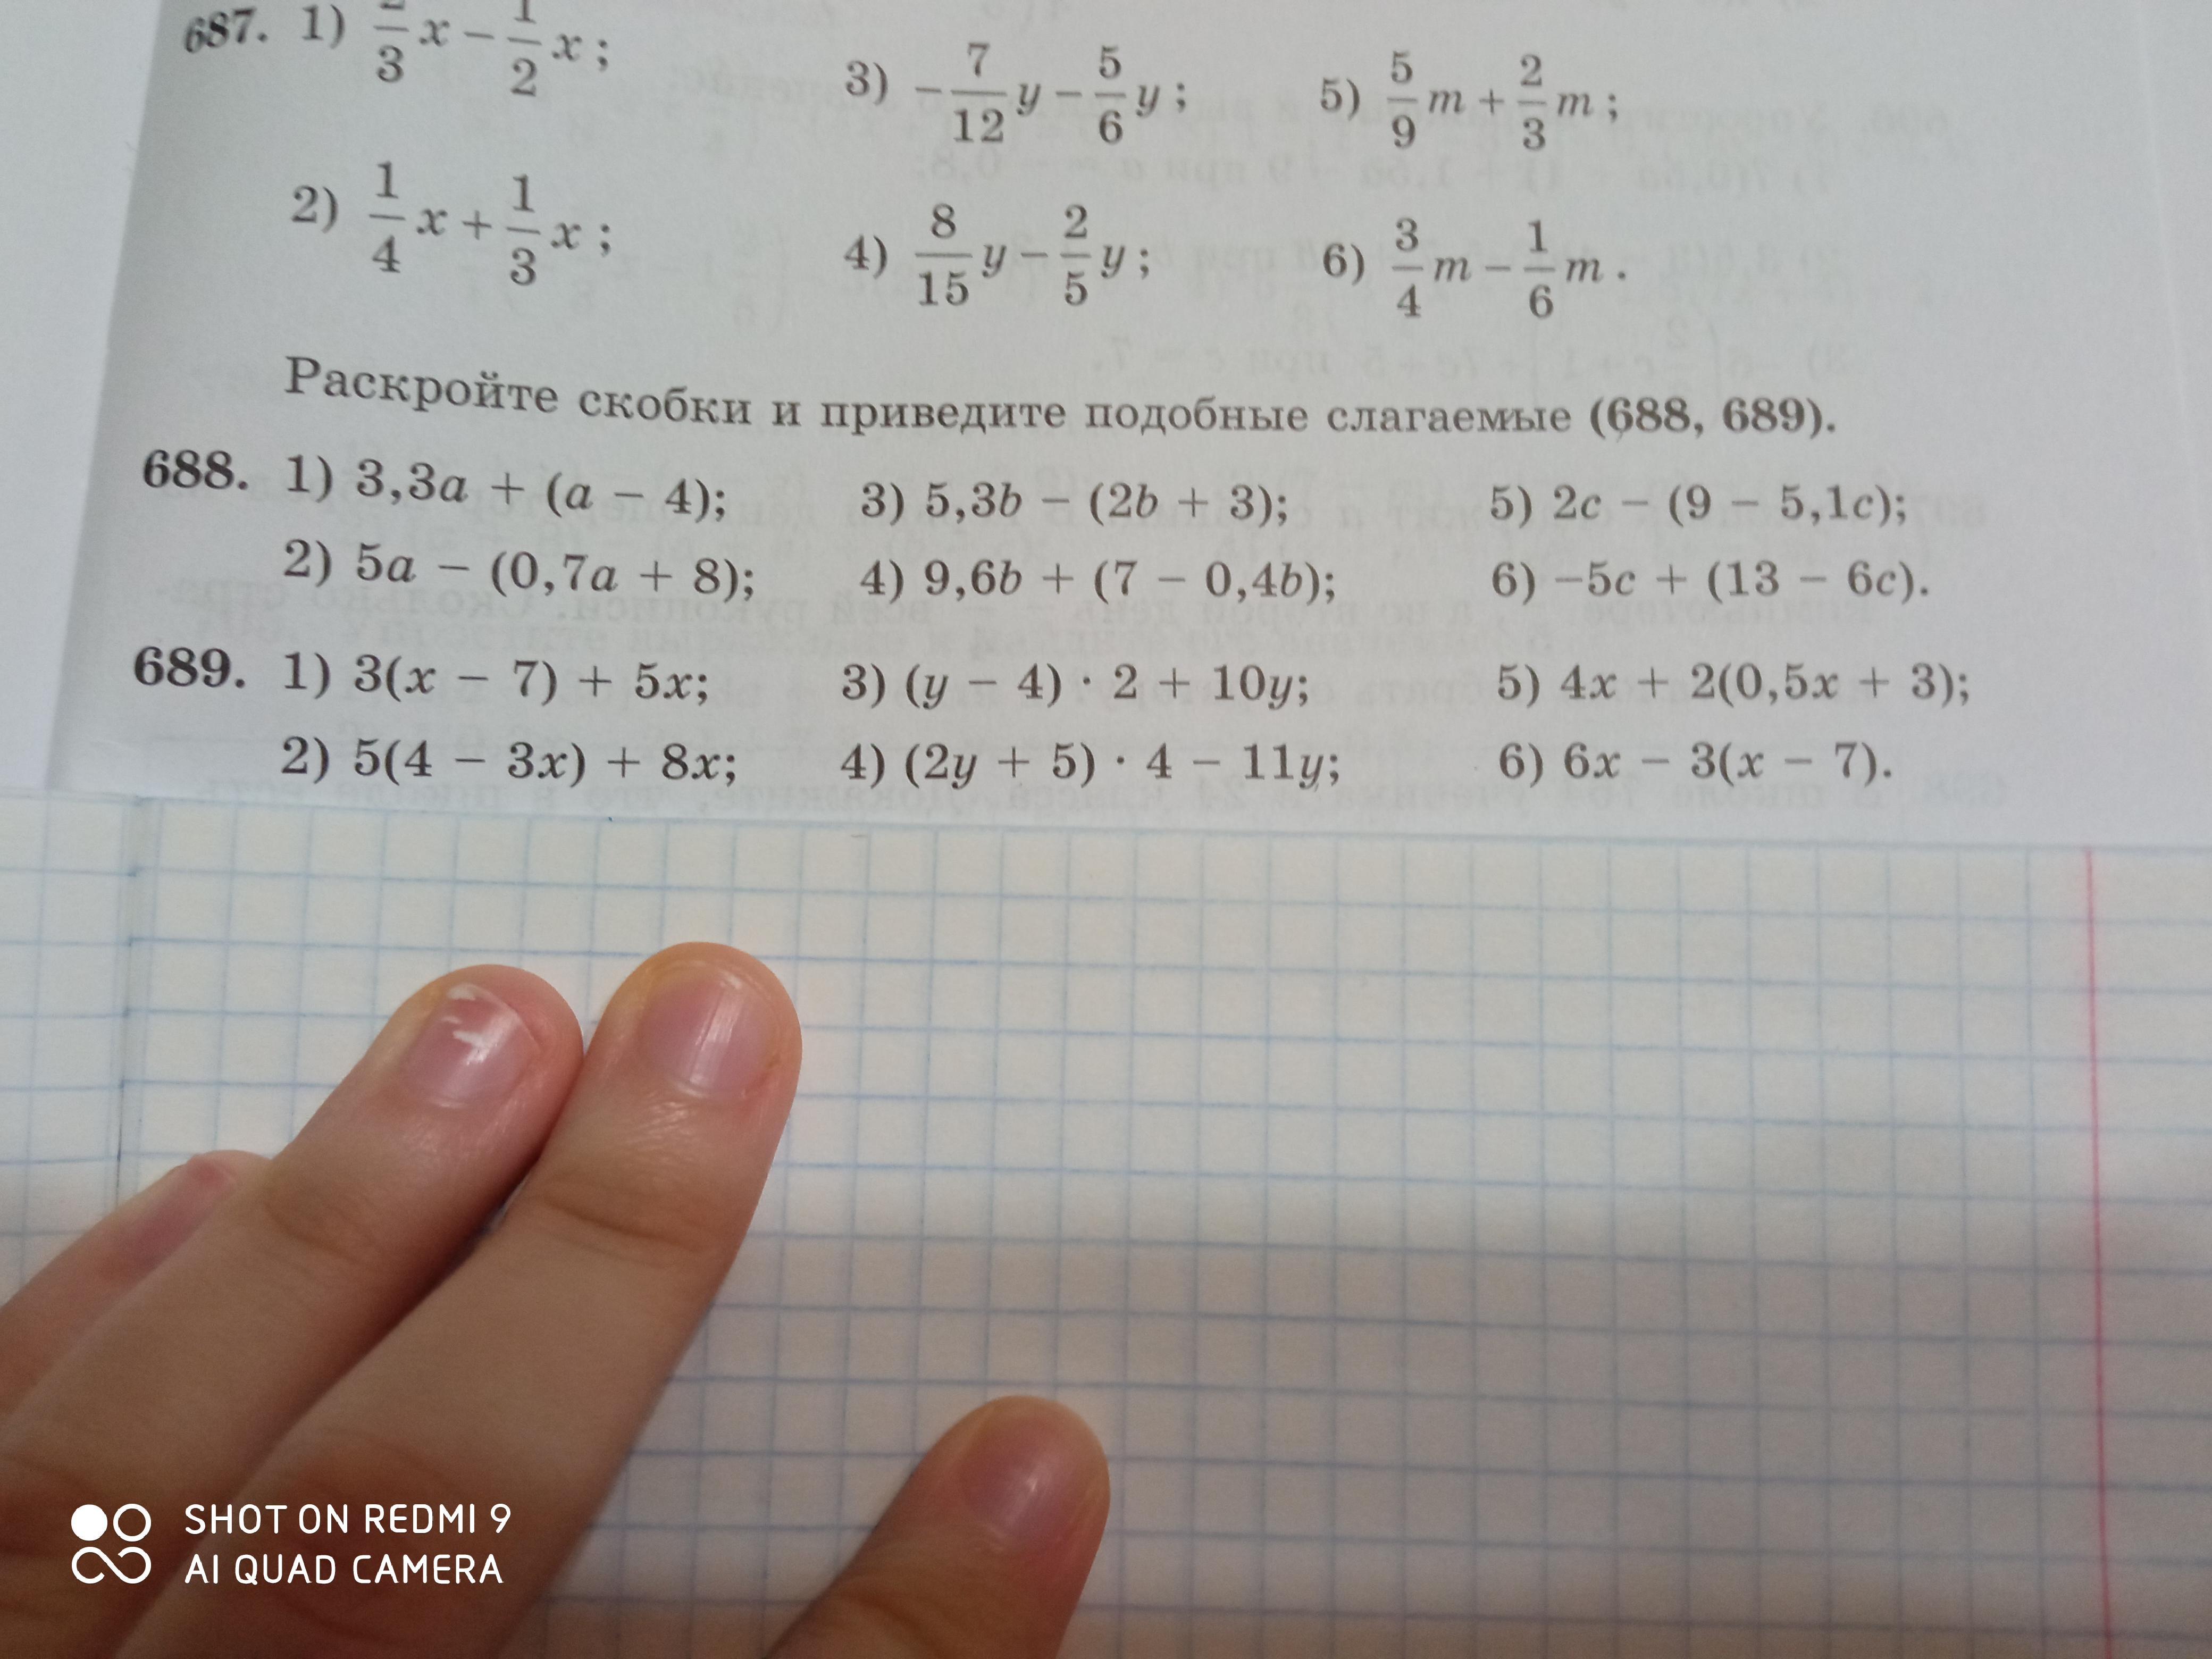 687. 1) 2/3 x − 1/2 x; 3) −7/12 y − 5/6 y; 5) 5/9 m + 2/3 m;
2) 1/4 x + 1/3 x; 4) 8/15 y − 2/5 y; 6) 3/4 m − 1/6 m.
Раскройте скобки и приведите подобные слагаемые (688, 689).
688. 1) 3,3a + (a − 4); 3) 5,3b − (2b + 3); 5) 2c − (9 − 5,1c);
2) 5a − (0,7a + 8); 4) 9,6b + (7 − 0,4b); 6) −5c + (13 − 6c).
689. 1) 3(x − 7) + 5x; 3) (y − 4) · 2 + 10y; 5) 4x + 2(0,5x + 3);
2) 5(4 − 3x) + 8x; 4) (2y + 5) · 4 − 11y; 6) 6x − 3(x − 7).
SHOT ON REDMI 9
AI QUAD CAMERA